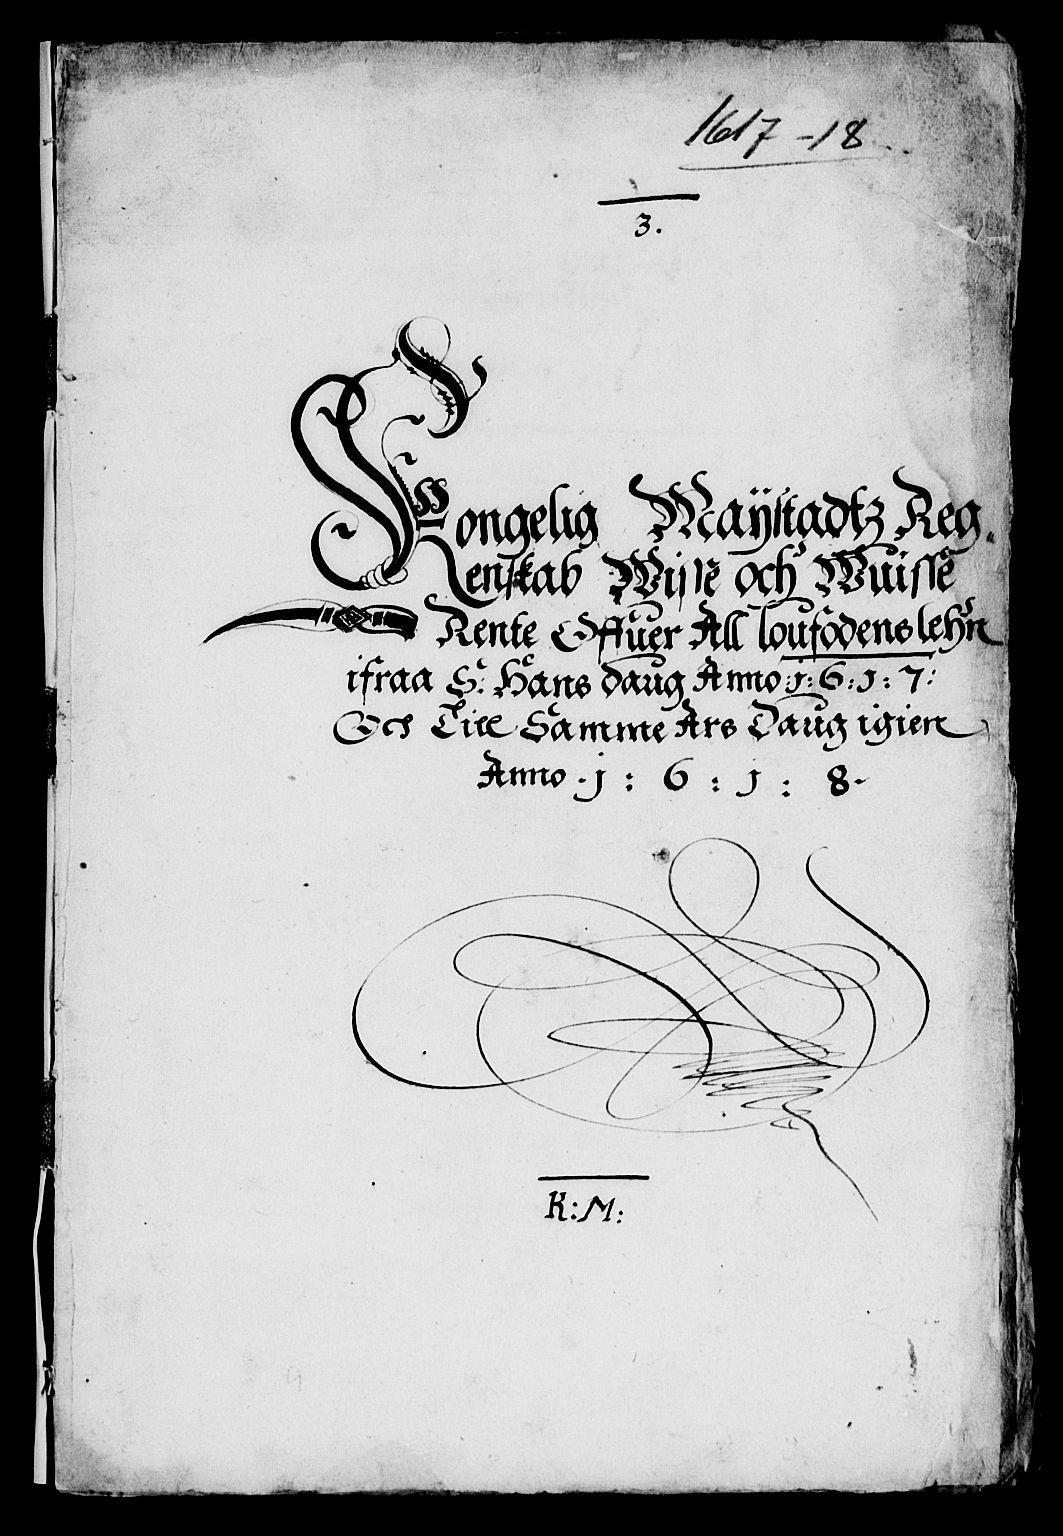 1617-18
3.
Kongelig Maÿstadtz Reg
Kenskab Wisse och Wuisse
Rente Offuer All loufodens lehn
ifraa S: Hans daug Anno j: 6: j: 7:
Och Till Samme Ars Daug igien
Anno j : 6 : j : 8.
K: M: